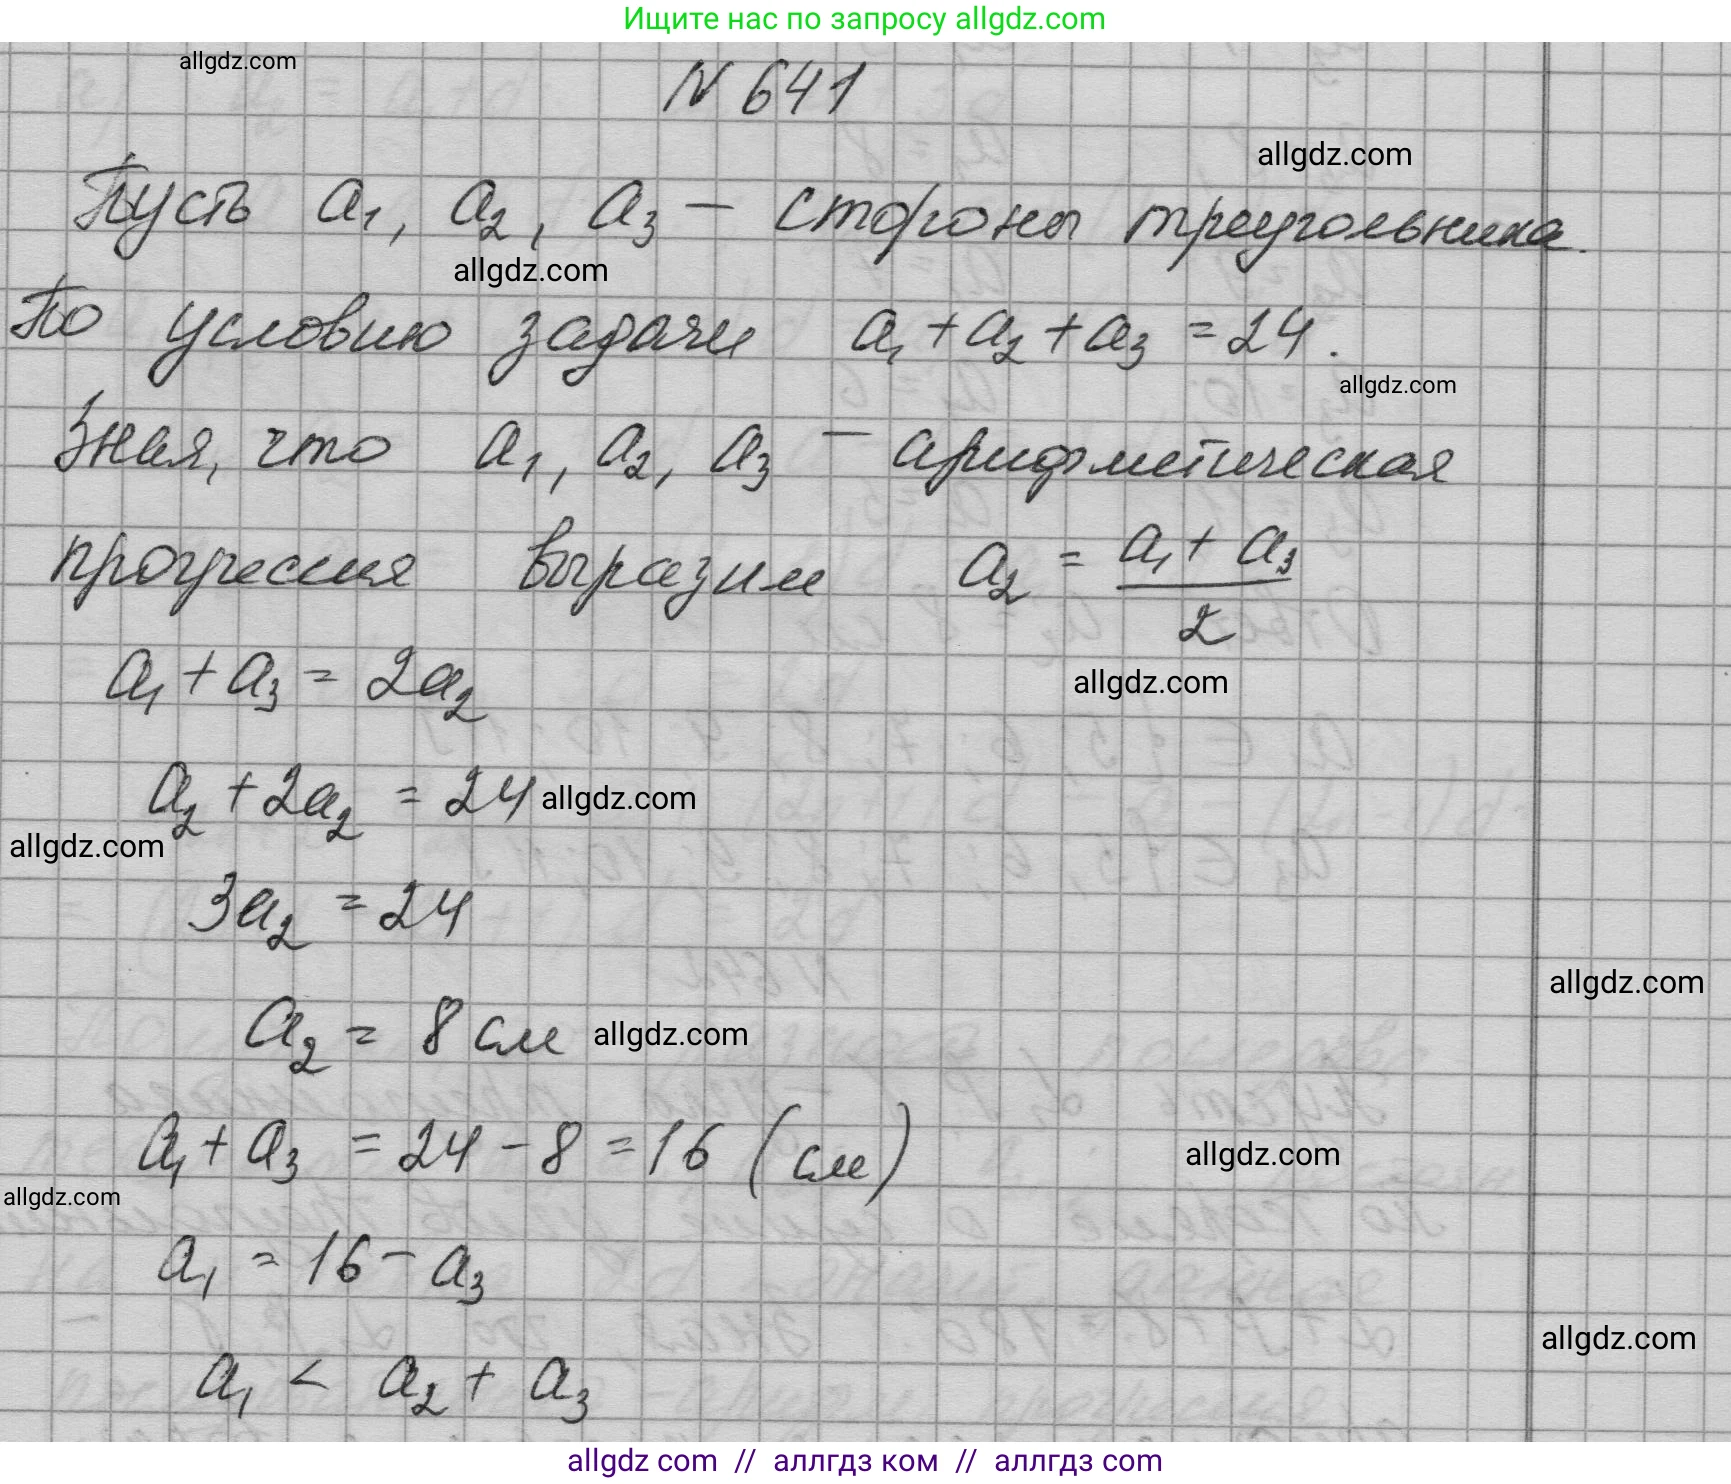 Ищите нас по запросу allgdz.com
allgdz.com
N 641
allgdz.com
Пусть a₁, a₂, a₃ – стороны треугольника.
allgdz.com
По условию задачи a₁ + a₂ + a₃ = 24.
allgdz.com
Зная, что a₁, a₂, a₃ – арифметическая
прогрессия выразим a₂ = (a₁ + a₃)/2
a₁ + a₃ = 2a₂
allgdz.com
a₂ + 2a₂ = 24
allgdz.com
allgdz.com
3a₂ = 24
allgdz.com
a₂ = 8 см
allgdz.com
a₁ + a₃ = 24 – 8 = 16 (см)
allgdz.com
allgdz.com
a₁ = 16 – a₃
allgdz.com
a₁ < a₂ + a₃
allgdz com // аллгдз ком // аллгдз com